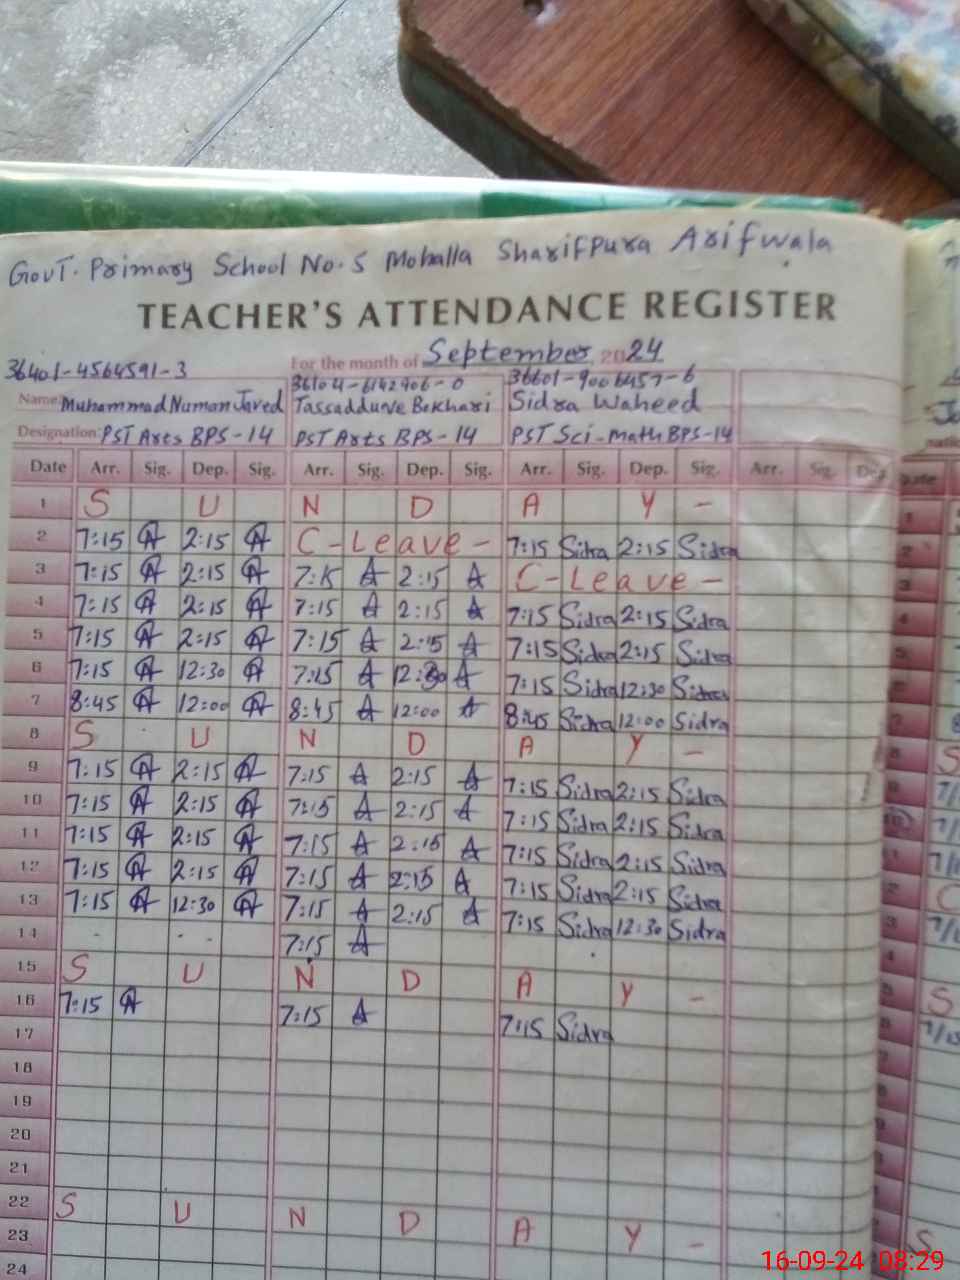 GovT. Primary School No. 5 Mohalla Sharifpura Arifwala
TEACHER'S ATTENDANCE REGISTER
For the month of September 2024
36401-4564591-3 36104-6142906-0 36601-9006457-6
Name: Muhammad Numan Javed Tassadduve Bokhari Sidra Waheed
Designation: PST Arts BPS-14 PST Arts BPS-14 PST Sci-Math BPS-14
Date Arr. Sig. Dep. Sig. Arr. Sig. Dep. Sig. Arr. Sig. Dep. Sig. Arr. Sig. Dep.
1 S U N D A Y -
2 7:15 2:15 C-Leave- 7:15 Sidra 2:15 Sidra
3 7:15 2:15 7:15 2:15 C-Leave-
4 7:15 2:15 7:15 2:15 7:15 Sidra 2:15 Sidra
5 7:15 2:15 7:15 2:15 7:15 Sidra 2:15 Sidra
6 7:15 12:30 7:15 12:30 7:15 Sidra 12:30 Sidra
7 8:45 12:00 8:45 12:00 8:45 Sidra 12:00 Sidra
8 S U N D A Y -
9 7:15 2:15 7:15 2:15 7:15 Sidra 2:15 Sidra
10 7:15 2:15 7:15 2:15 7:15 Sidra 2:15 Sidra
11 7:15 2:15 7:15 2:15 7:15 Sidra 2:15 Sidra
12 7:15 2:15 7:15 2:15 7:15 Sidra 2:15 Sidra
13 7:15 12:30 7:15 2:15 7:15 Sidra 12:30 Sidra
14 7:15
15 S U N D A Y -
16 7:15 7:15 7:15 Sidra
17
18
19
20
21
22 S U N D A Y -
23
24
16-09-24 08:29